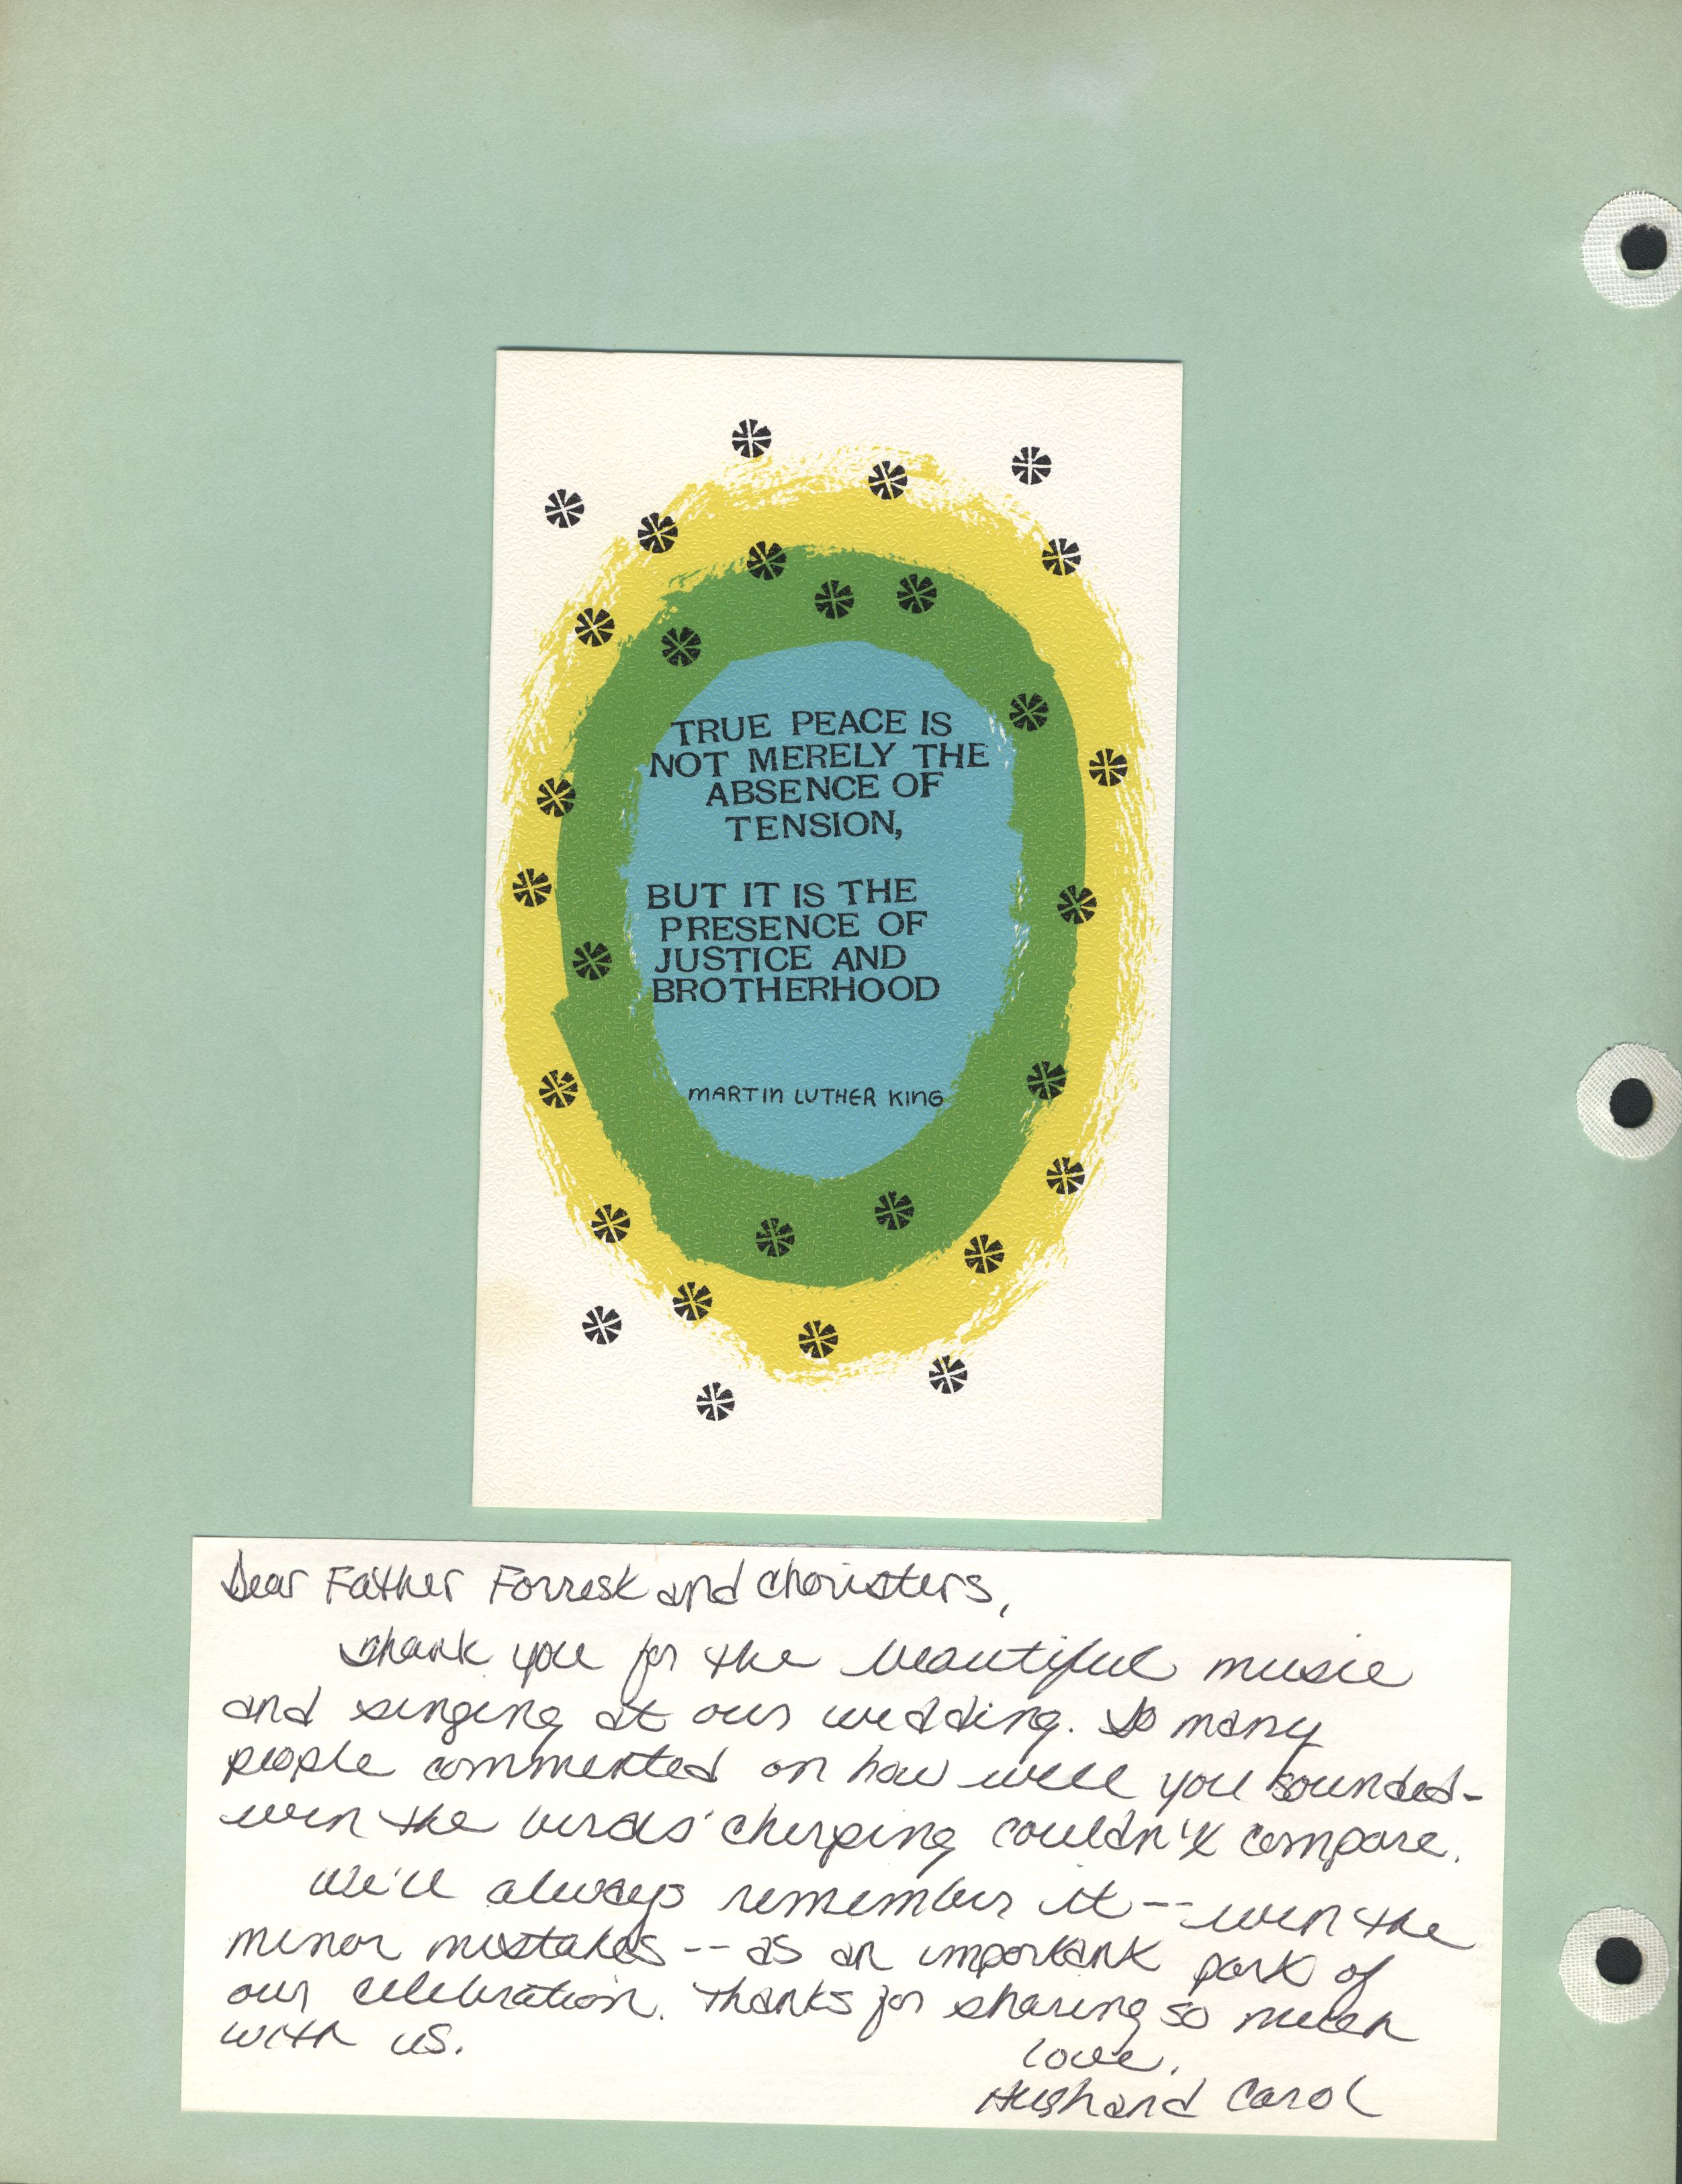 TRUE PEACE IS
NOT MERELY THE
ABSENCE OF
TENSION,
BUT IT IS THE
PRESENCE OF
JUSTICE AND
BROTHERHOOD
MARTIN LUTHER KING
Dear Father Forrest and choristers,
Thank you for the beautiful music
and singing at our wedding. So many
people commented on how well you sounded-
even the birds' chirping couldn't compare.
We'll always remember it -- even the
minor mistakes -- as an important part of
our celebration. Thanks for sharing so much
with us.
love,
Hugh and Carol